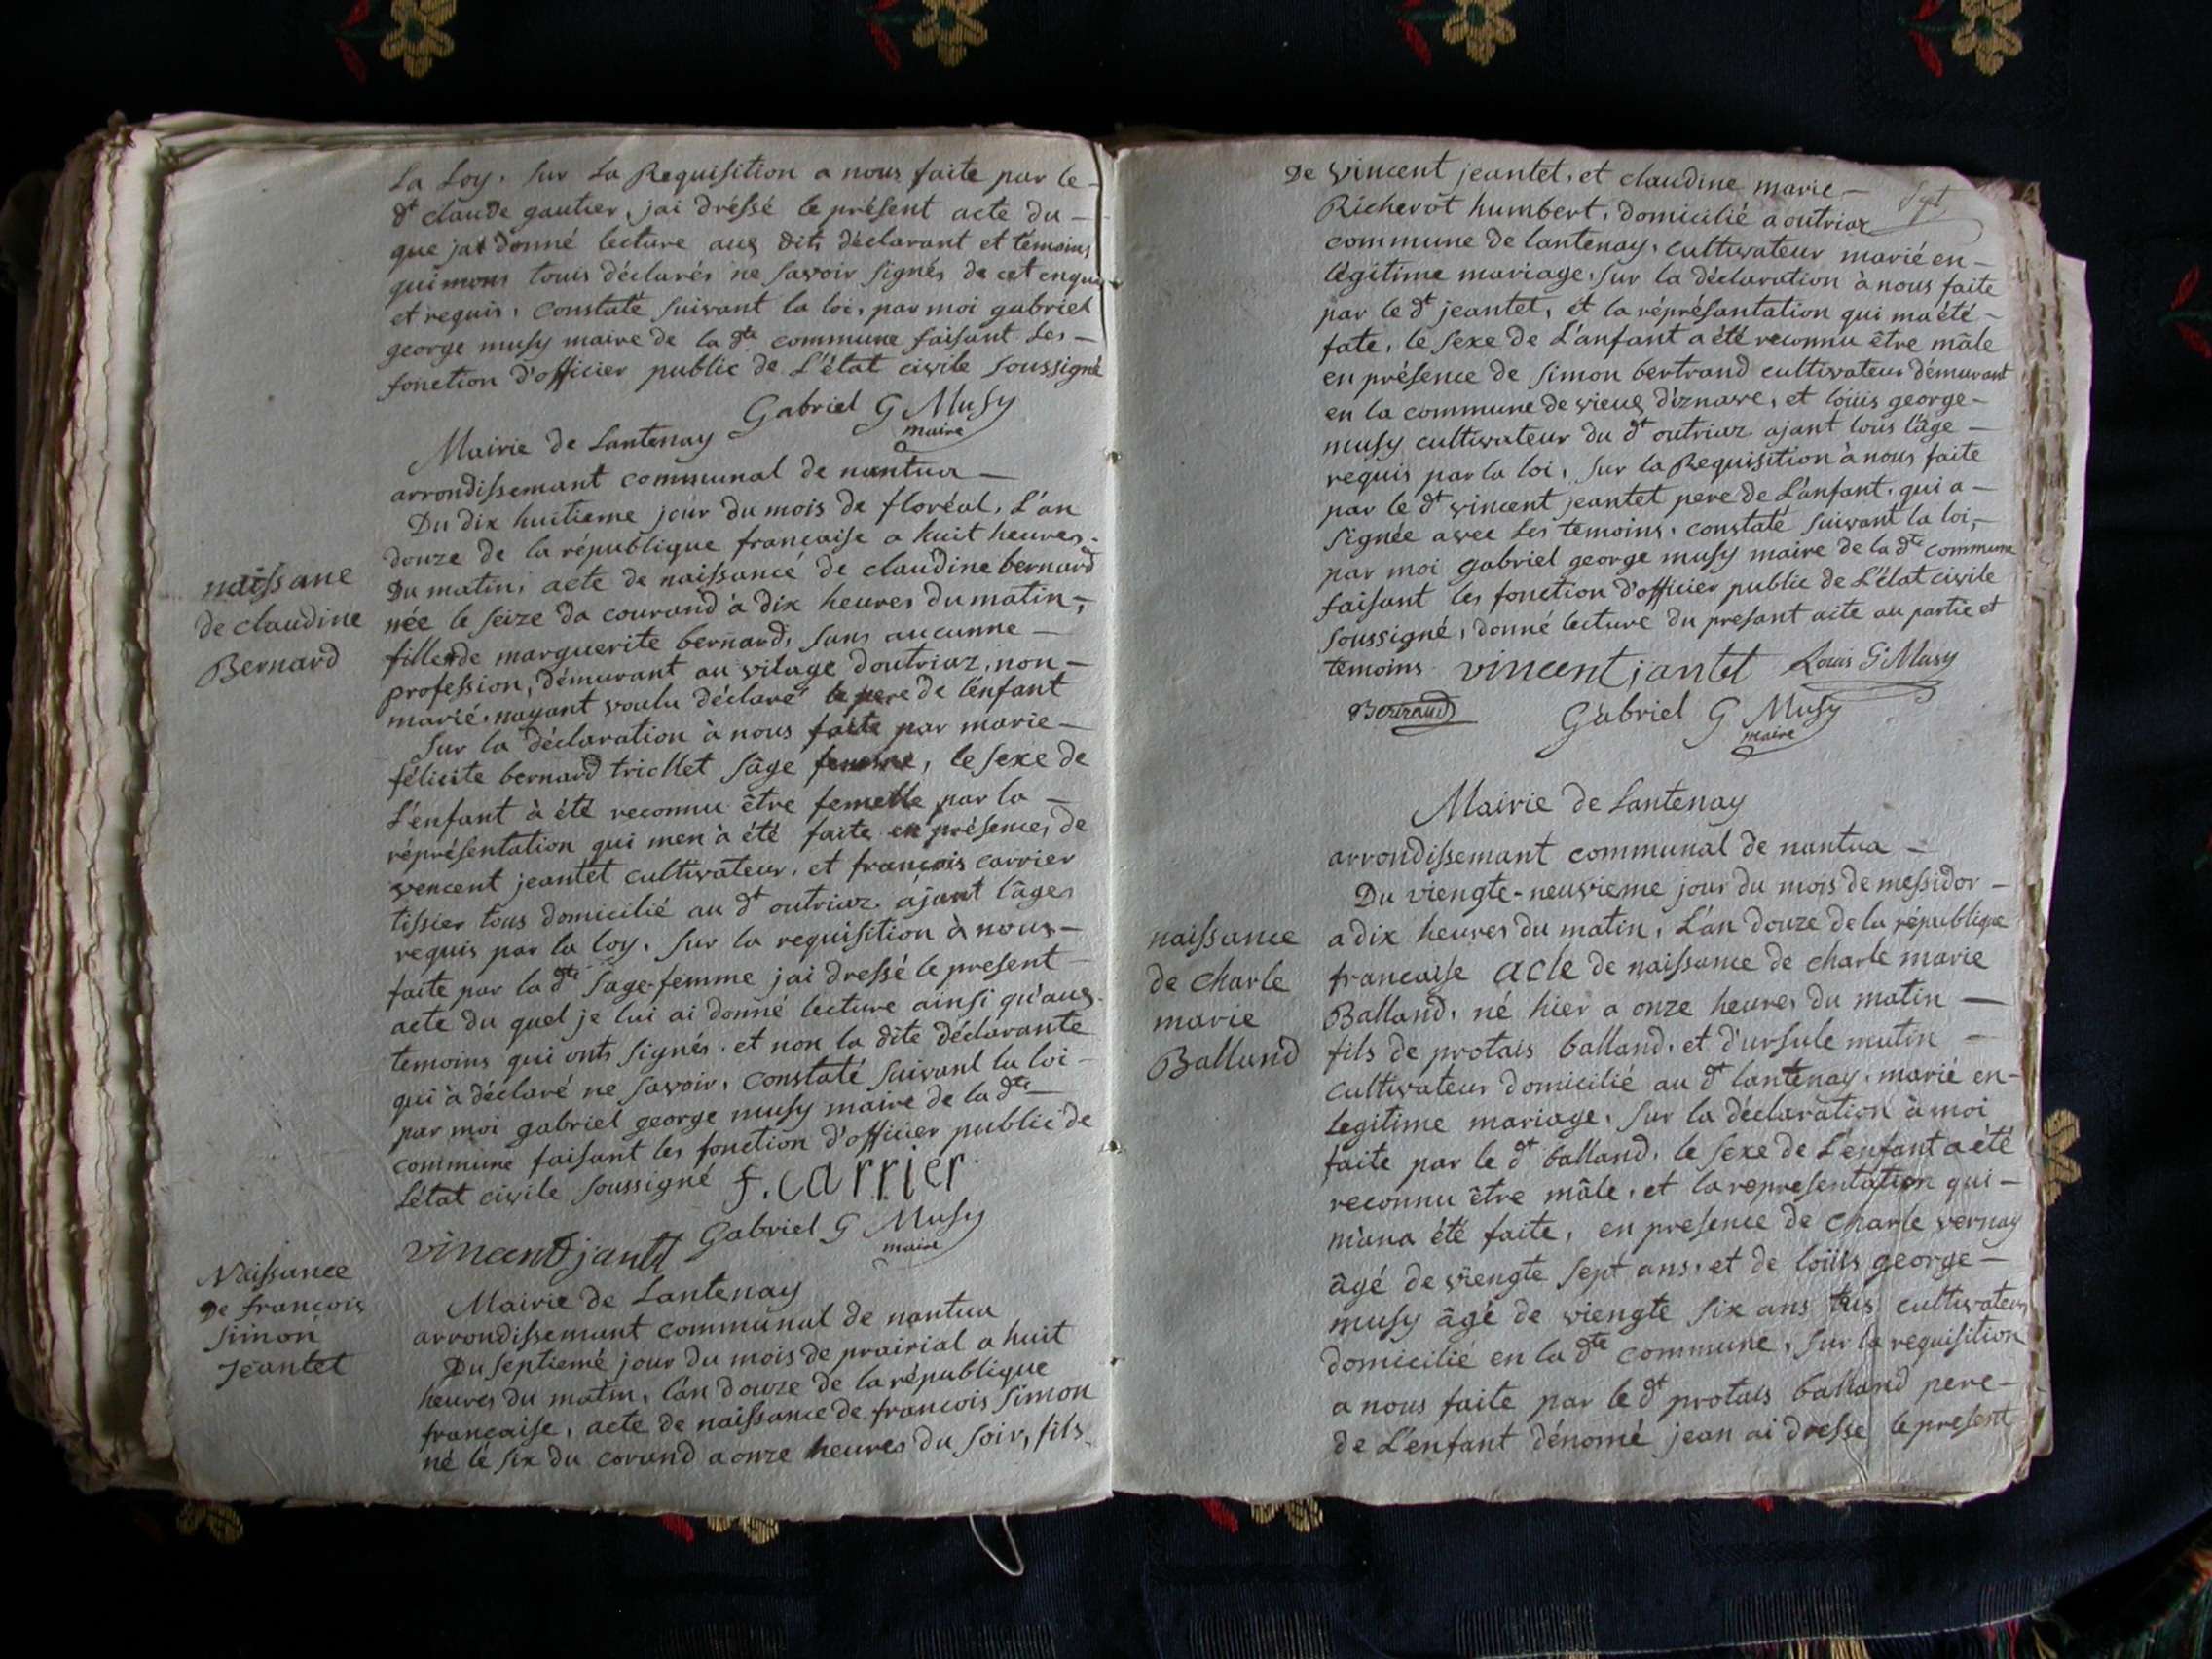 La Loy. sur La Requisition a nous faite par le
dt claude gautier, jai dréssé le présent acte du
que jai donné lecture aux dits déclarant et témoins
qui mons touis déclarés ne savoir signés de cet enquis
et requis, Constaté suivant la loi, par moi gabriel
george musy maire de la dte commune faisant Les
fonction d'officier public de L'état civile soussigné
Gabriel G Musy
maire
Mairie de Lantenay
arrondissemant communal de nantua
Du dix huitieme jour du mois de floréal, L'an
douze de la république francaise a huit heures
Du matin, acte de naissance de claudine bernard
née le seize da courand à dix heures du matin,
fille de marguerite bernard, sans aucunne
profession, démurant au vilage doutriaz, non
marié, nayant voulu déclaré le pere de l'énfant
Sur la déclaration à nous faite par marie
félicite bernard trichet sâge femme, le sexe de
L'enfant à été reconnu être femelle par la
réprésentation qui men à été faite en présences de
vencent jeantet cultivateur, et francois carrier
tissier tous domicilié au dt outriaz. ájant l'âges
requis par la loy. sur la requisition à nous
faite par la dte sage-femme jai dressé le present
acte du quel je lui ai donné lecture ainsi qu'aux
temoins qui onts signés. et non la dite déclarante
qui à déclaré ne savoir, constaté suivant la loi
par moi gabriel george musy maire de la dte
commune faisant les fonction d'officier public de
L'état civile soussigné f. carrier
vincent jantet Gabriel G Musy
maire
Mairie de Lantenay
arrondissemant communal de nantua
Du septiemé jour du mois de prairial a huit
heures du matin, lán douze de la république
francaise, acte de naissance de francois Simon
né lé six du corand a onze heures du soir, fils
naissane
de claudine
Bernard
Naissance
de francois
Simon
Jeantet
De vincent jeantet, et claudine marie
Sept
Richerot humbert, domicilié a outriaz
commune de lantenay, cultivateur marié en
légitime mariage, sur la déclaration à nous faite
par le dt jeantet, et la réprésantation qui ma été
fate, le sexe de L'anfant a été reconnu être mâle
en présence de simon bertrand cultivateur démurant
en la commune de vieux d'iznave, et loüis george
musy cultivateur du dt outriaz ajant tous l'âge
requis par la loi, sur la Requisition à nous faite
par le dt vincent jeantet pere de L'anfant, qui a
signée avec Les temoins, constaté suivant la loi,
par moi gabriel george musy maire de la dte commune
faisant les fonction d'officier public de L'état civile
soussigné, donné lecture du presant acte au partie et
temoins vincent jantet Louis G Musy
Bertrand Gabriel G Musy
maire
Mairie de Lantenay
arrondissemant communal de nantua
Du viengte-neuvieme jour du mois de messidor
a dix heures du matin, L'án douze de la république
francaise acte de naissance de charle marie
Balland, né hier a onze heures du matin
fils de protais balland, et d'ursule mutin
cultivateur domicilié au dt lantenay, marié en
Legitime mariage, sur la déclaration à moi
faite par le dt balland, le sexe de L'énfant a été
reconnu être mâle, et la representation qui
m'ana été faite, en presence de charle vernay
âgé de viengte sept ans, et de loüis george
musy âgé de viengte six ans tus cultivateur
domicilié en la dte commune, sur la requisition
a nous faite par le dt protais balland pere
de L'enfant dénomé jean ai dresse le present
naissance
de charle
marie
Balland